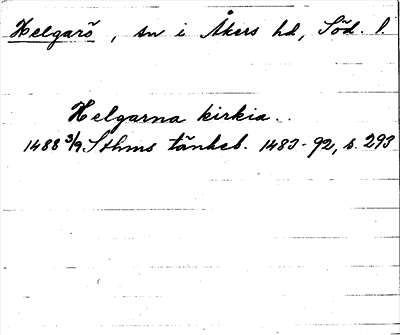 Helgarö, sn i Åkers hd, Söd. l.
Helgarna kirkia..
1488 3/9 Sthms tänkeb. 1483-92, s. 293